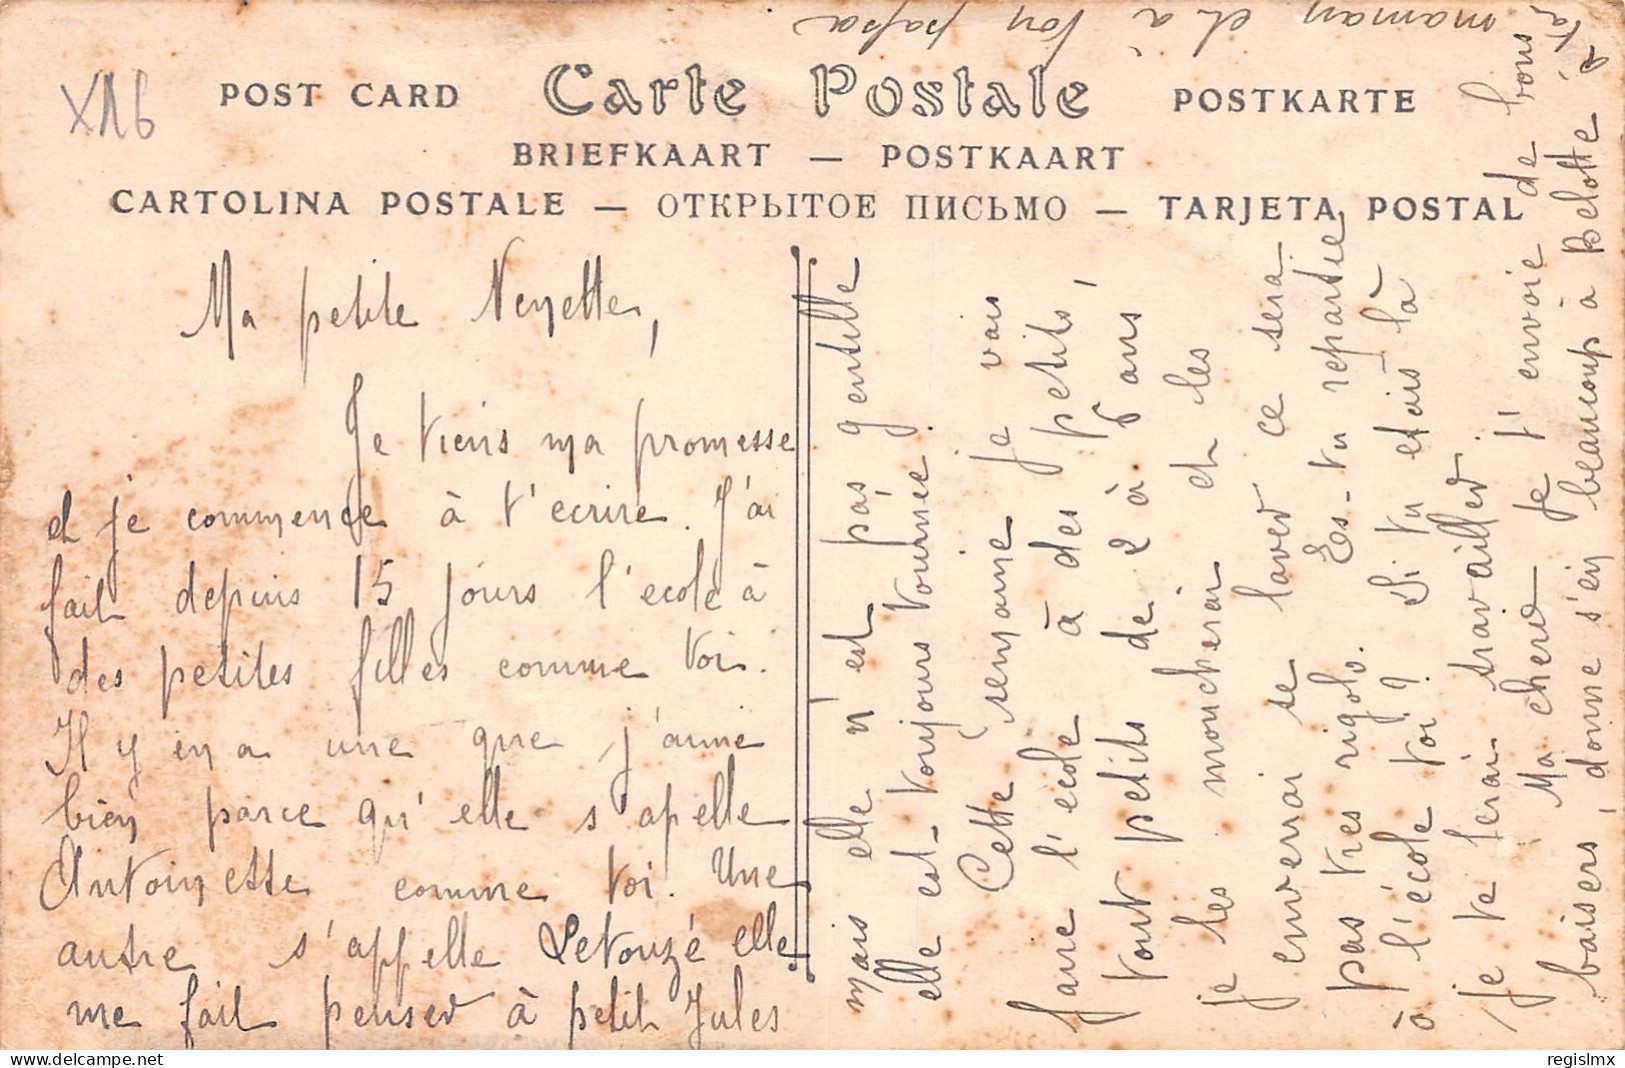 maman et à ton papa
X16
POST CARD Carte Postale POSTKARTE
BRIEFKAART — POSTKAART
CARTOLINA POSTALE — ОТКРЫТОЕ ПИСЬМО — TARJETA POSTAL
Ma petite Nenette,
Je tiens ma promesse
et je commence à t'ecrire. J'ai
fait depuis 15 jours l'ecole à
des petites filles comme toi.
Il y en a une que j'aime
bien parce qu'elle s'apelle
Antoinette comme toi. Une
autre s'appelle Letouzé elle
me fait penser à petit Jules
mais elle n'est pas gentille
elle est toujours tournée.
Cette semaine je vais
faire l'ecole à des petits,
tout petits de 2 à 6 ans
je les moucherai et les
enverrai se laver ce sera
pas tres rigolo. Es-tu repartie
à l'école toi? Si tu etais là
je te ferai travailler.
Ma cherie je t'envoie de bons
baisers, donne s'en beaucoup à Belotte à ta